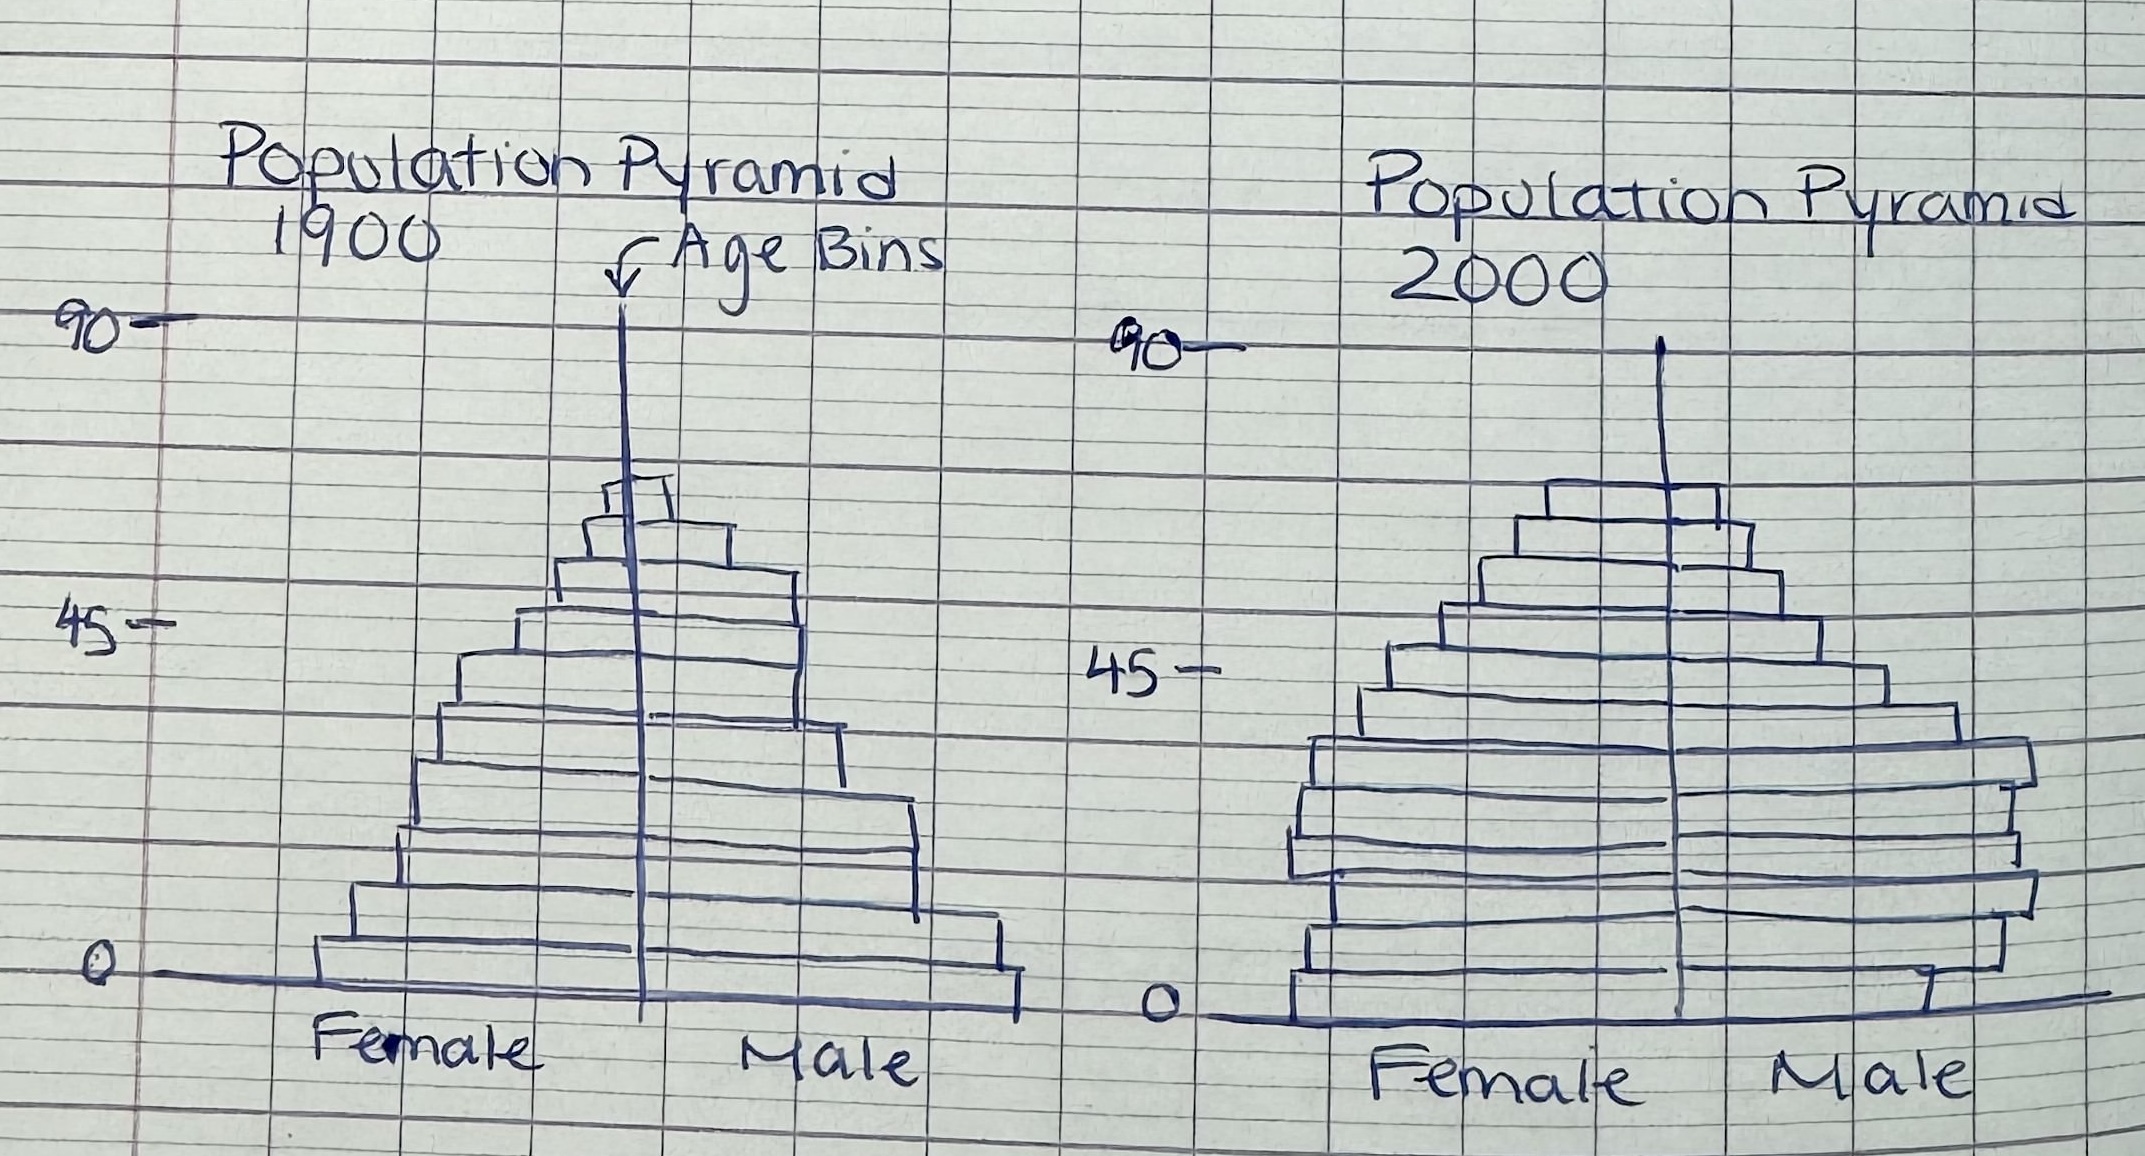 Population Pyramid
1900
Age Bins
90
45
0
Female Male
Population Pyramid
2000
90
45
0
Female Male